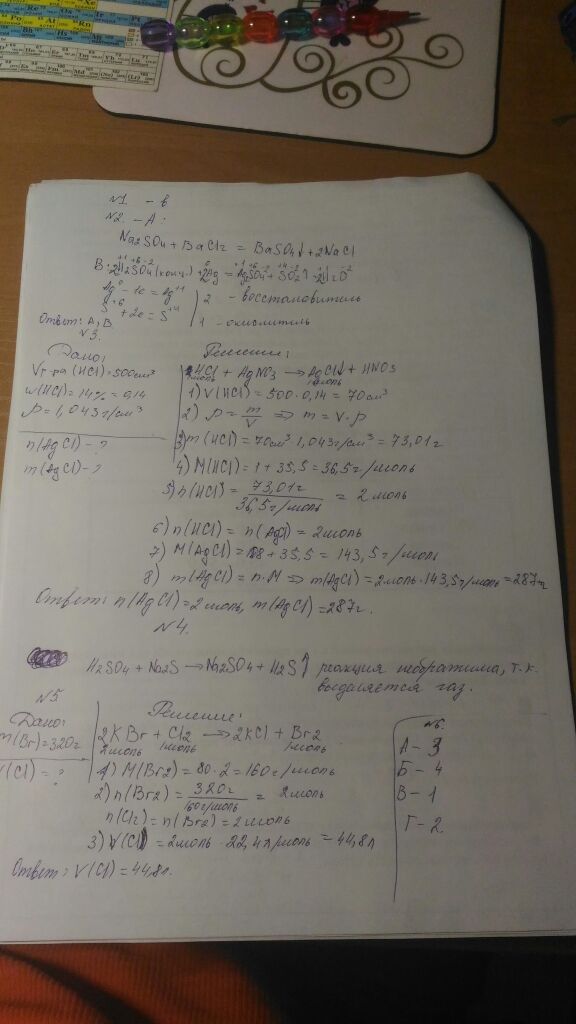 N1. - в
N2. - А.
Na2SO4 + BaCl2 = BaSO4↓ + 2NaCl
В. 2H2SO4 (конц.) + 2Ag = Ag2SO4 + SO2↑ + 2H2O
Ag⁰ - 1e = Ag⁺¹ | 2 - восстановитель
S⁺⁶ + 2e = S⁺⁴ | 1 - окислитель
Ответ: А, В.
N3.
Дано:
Vр-ра (HCl) = 500 см³
w(HCl) = 14% = 0,14
ρ = 1,043 г/см³
n(AgCl) - ?
m(AgCl) - ?
Решение:
HCl + AgNO3 → AgCl↓ + HNO3
1) V(HCl) = 500 · 0,14 = 70 см³
2) ρ = m/V ⇒ m = V · ρ
3) m(HCl) = 70 см³ · 1,043 г/см³ = 73,01 г
4) M(HCl) = 1 + 35,5 = 36,5 г/моль
5) n(HCl) = 73,01 г / 36,5 г/моль = 2 моль
6) n(HCl) = n(AgCl) = 2 моль
7) M(AgCl) = 108 + 35,5 = 143,5 г/моль
8) m(AgCl) = n · M ⇒ m(AgCl) = 2 моль · 143,5 г/моль = 287 г
Ответ: n(AgCl) = 2 моль, m(AgCl) = 287 г.
N4.
H2SO4 + Na2S → Na2SO4 + H2S↑ реакция необратима, т.к.
выделяется газ.
N5
Дано:
m(Br) = 320 г
V(Cl) = ?
Решение:
2KBr + Cl2 → 2KCl + Br2
2 моль 1 моль 1 моль
1) M(Br2) = 80 · 2 = 160 г/моль
2) n(Br2) = 320 г / 160 г/моль = 2 моль
n(Cl2) = n(Br2) = 2 моль
3) V(Cl) = 2 моль · 22,4 л/моль = 44,8 л
Ответ: V(Cl) = 44,8 л.
N6.
А - 3
Б - 4
В - 1
Г - 2.